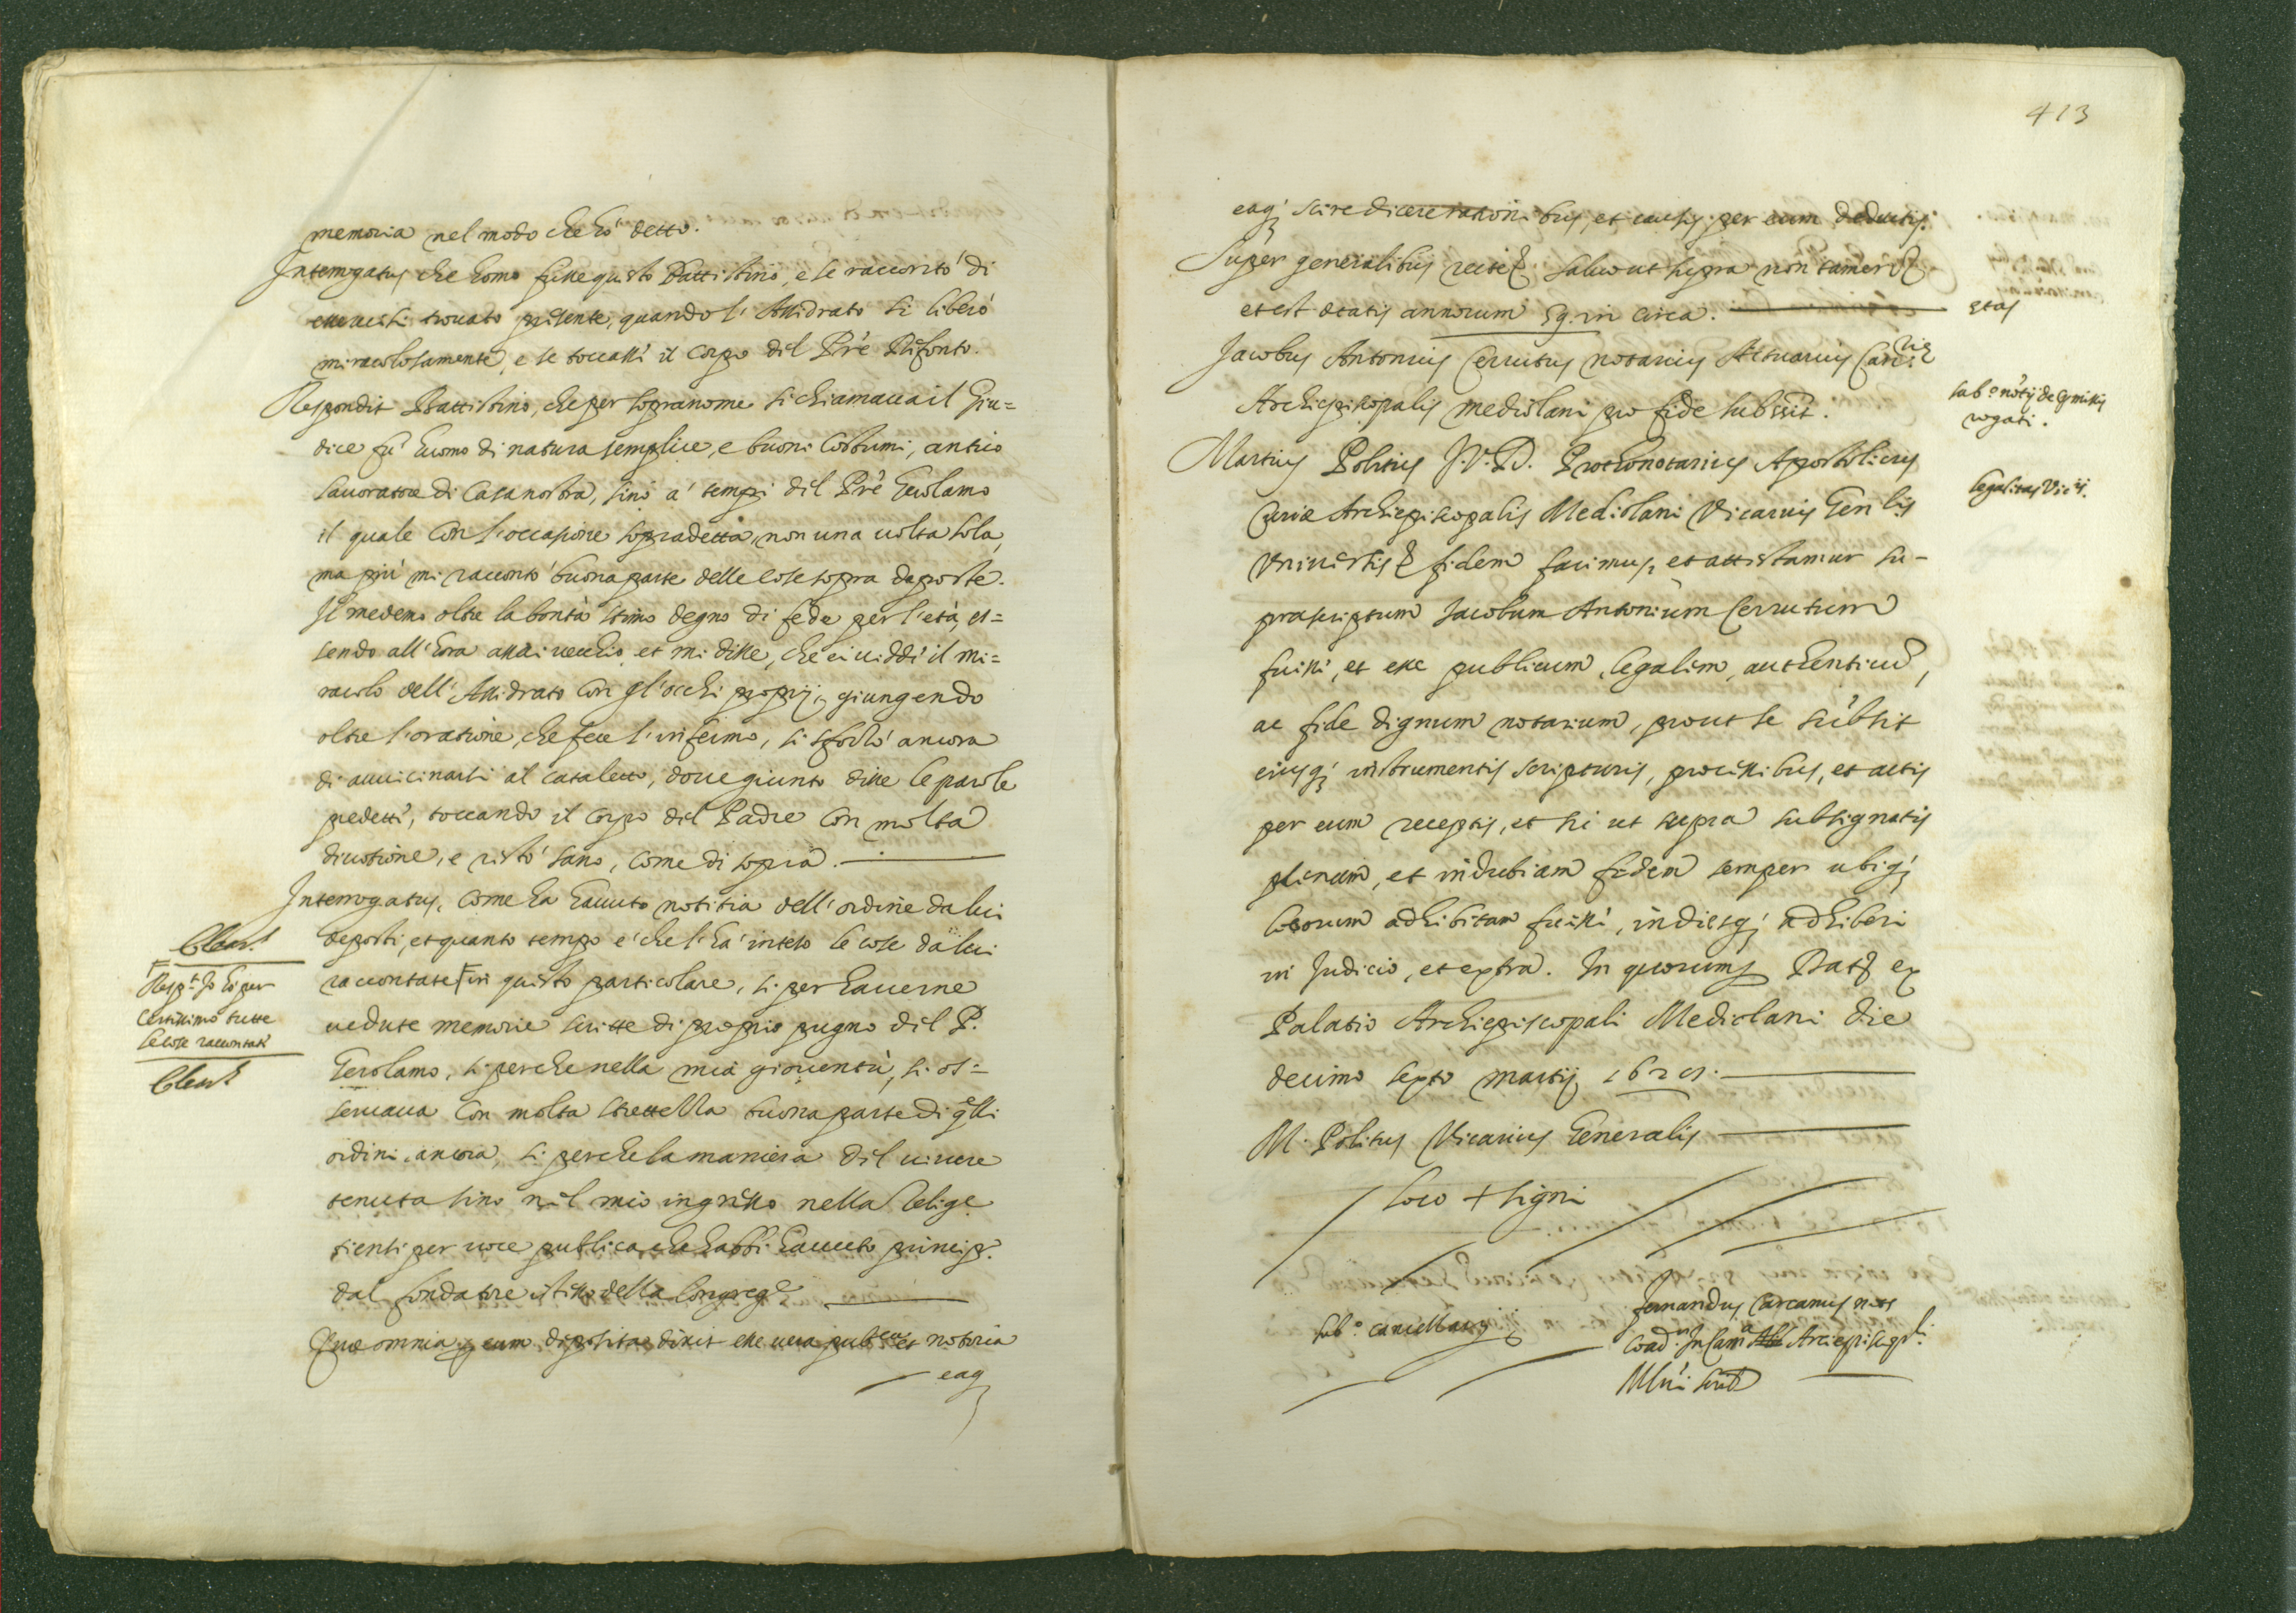 memoria nel modo che hò detto.
Interrogatus che homo fusse questo Battistino, e se raccontò di
esservisi trovato presente, quando l'Assidrato si liberò
miracolosamente, e se toccassi il corpo del Prè Difonto.
Respondit Battistino, che per sopranome si chiamava il Giu=
dice fù huomo di natura semplice, e buoni costumi, antico
lavoratore di Casa nostra, sino a' tempi del Prè Gerolamo
il quale con l'occasione sopradetta, non una volta sola,
ma più mi raccontò buona parte delle cose sopra deposte.
Il medemo oltre la bontà stimo degno di fede per l'età, es=
sendo all'hora assai vecchio, et mi disse, che ei viddi il mi=
racolo dell'Assidrato con gl'occhi proprij, giungendo
oltre l'oratione, che fece l'infermo, si sforzò ancora
di avvicinarsi al cataletto, dove giunto disse le parole
predetti, toccando il corpo del Padre con molta
divotione, e restò sano, come di sopra.
Interrogatus, come ha havuto notitia dell'ordine da lui
deposti, et quanto tempo è che l'ha inteso le cose da lui
raccontate in questo particolare, si per haverne
vedute memorie scritte di proprio pugno del P.
Gerolamo, si perche nella mia gioventù, si os=
servava con molta strettezza buona parte di qlli
ordini ancora, si perche la maniera del vivere
tenuta sino nel mio ingresso nella Relige
tiensi per voce publica, che habbi havuto princip.
dal fondatore istesso della Congrege
Quæ omnia p eum deposita dixit esse vera pubca et notoria
eaq
Respt Io hò per
certissimo tutte
le cose raccontati
413
eaq; scire dicere rationibus, et causis per eum deductis.
Super generalibus recte salvo ut supra non tamen
et est ætatis annorum 59. in circa.
etas
Jacobus Antonius Cerrutus notarius Actuarius Curiæ
Archiepiscopalis mediolani pro fide subssit.
subo notij de Cremissis
rogati.
Martius Politius J.V.D. Prothonotarius Apostolicus
legalitas Vicij.
Curiæ Archiepiscopalis Mediolani Vicarius Genlis
Universis fidem facimus, et attestamur su-
prascriptum Jacobum Antonium Cerrutum
fuisse, et esse publicum, legalem, authenticu,
ac fide dignum notarium, prout se subsit
eiusq; instrumentis scripturis, processibus, et actis
per eum receptis, et sic ut supra subsignatis
plenam, et indubiam fidem semper ubiq;
locorum adhibitam fuisse, indiesq; adhiberi
in Judicio, et extra. In quorum Dat ex
Palatio Archiepiscopali Mediolani die
decimo sexto martij 1625.
M. Politus Vicarius Generalis
loco + signi
subo cancellarij
fernandus Carcanus nots
Coadr In Canra Archiepiscopli
Mlni